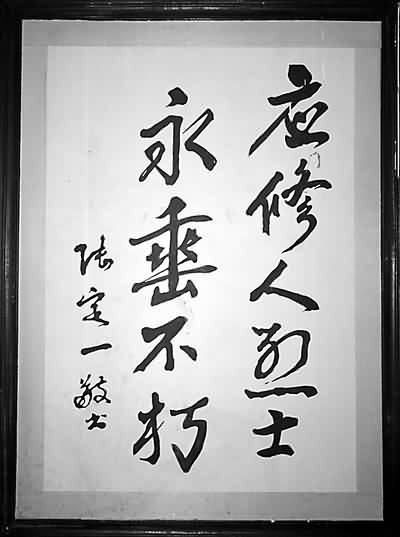 应修人烈士
永垂不朽
陆定一敬书